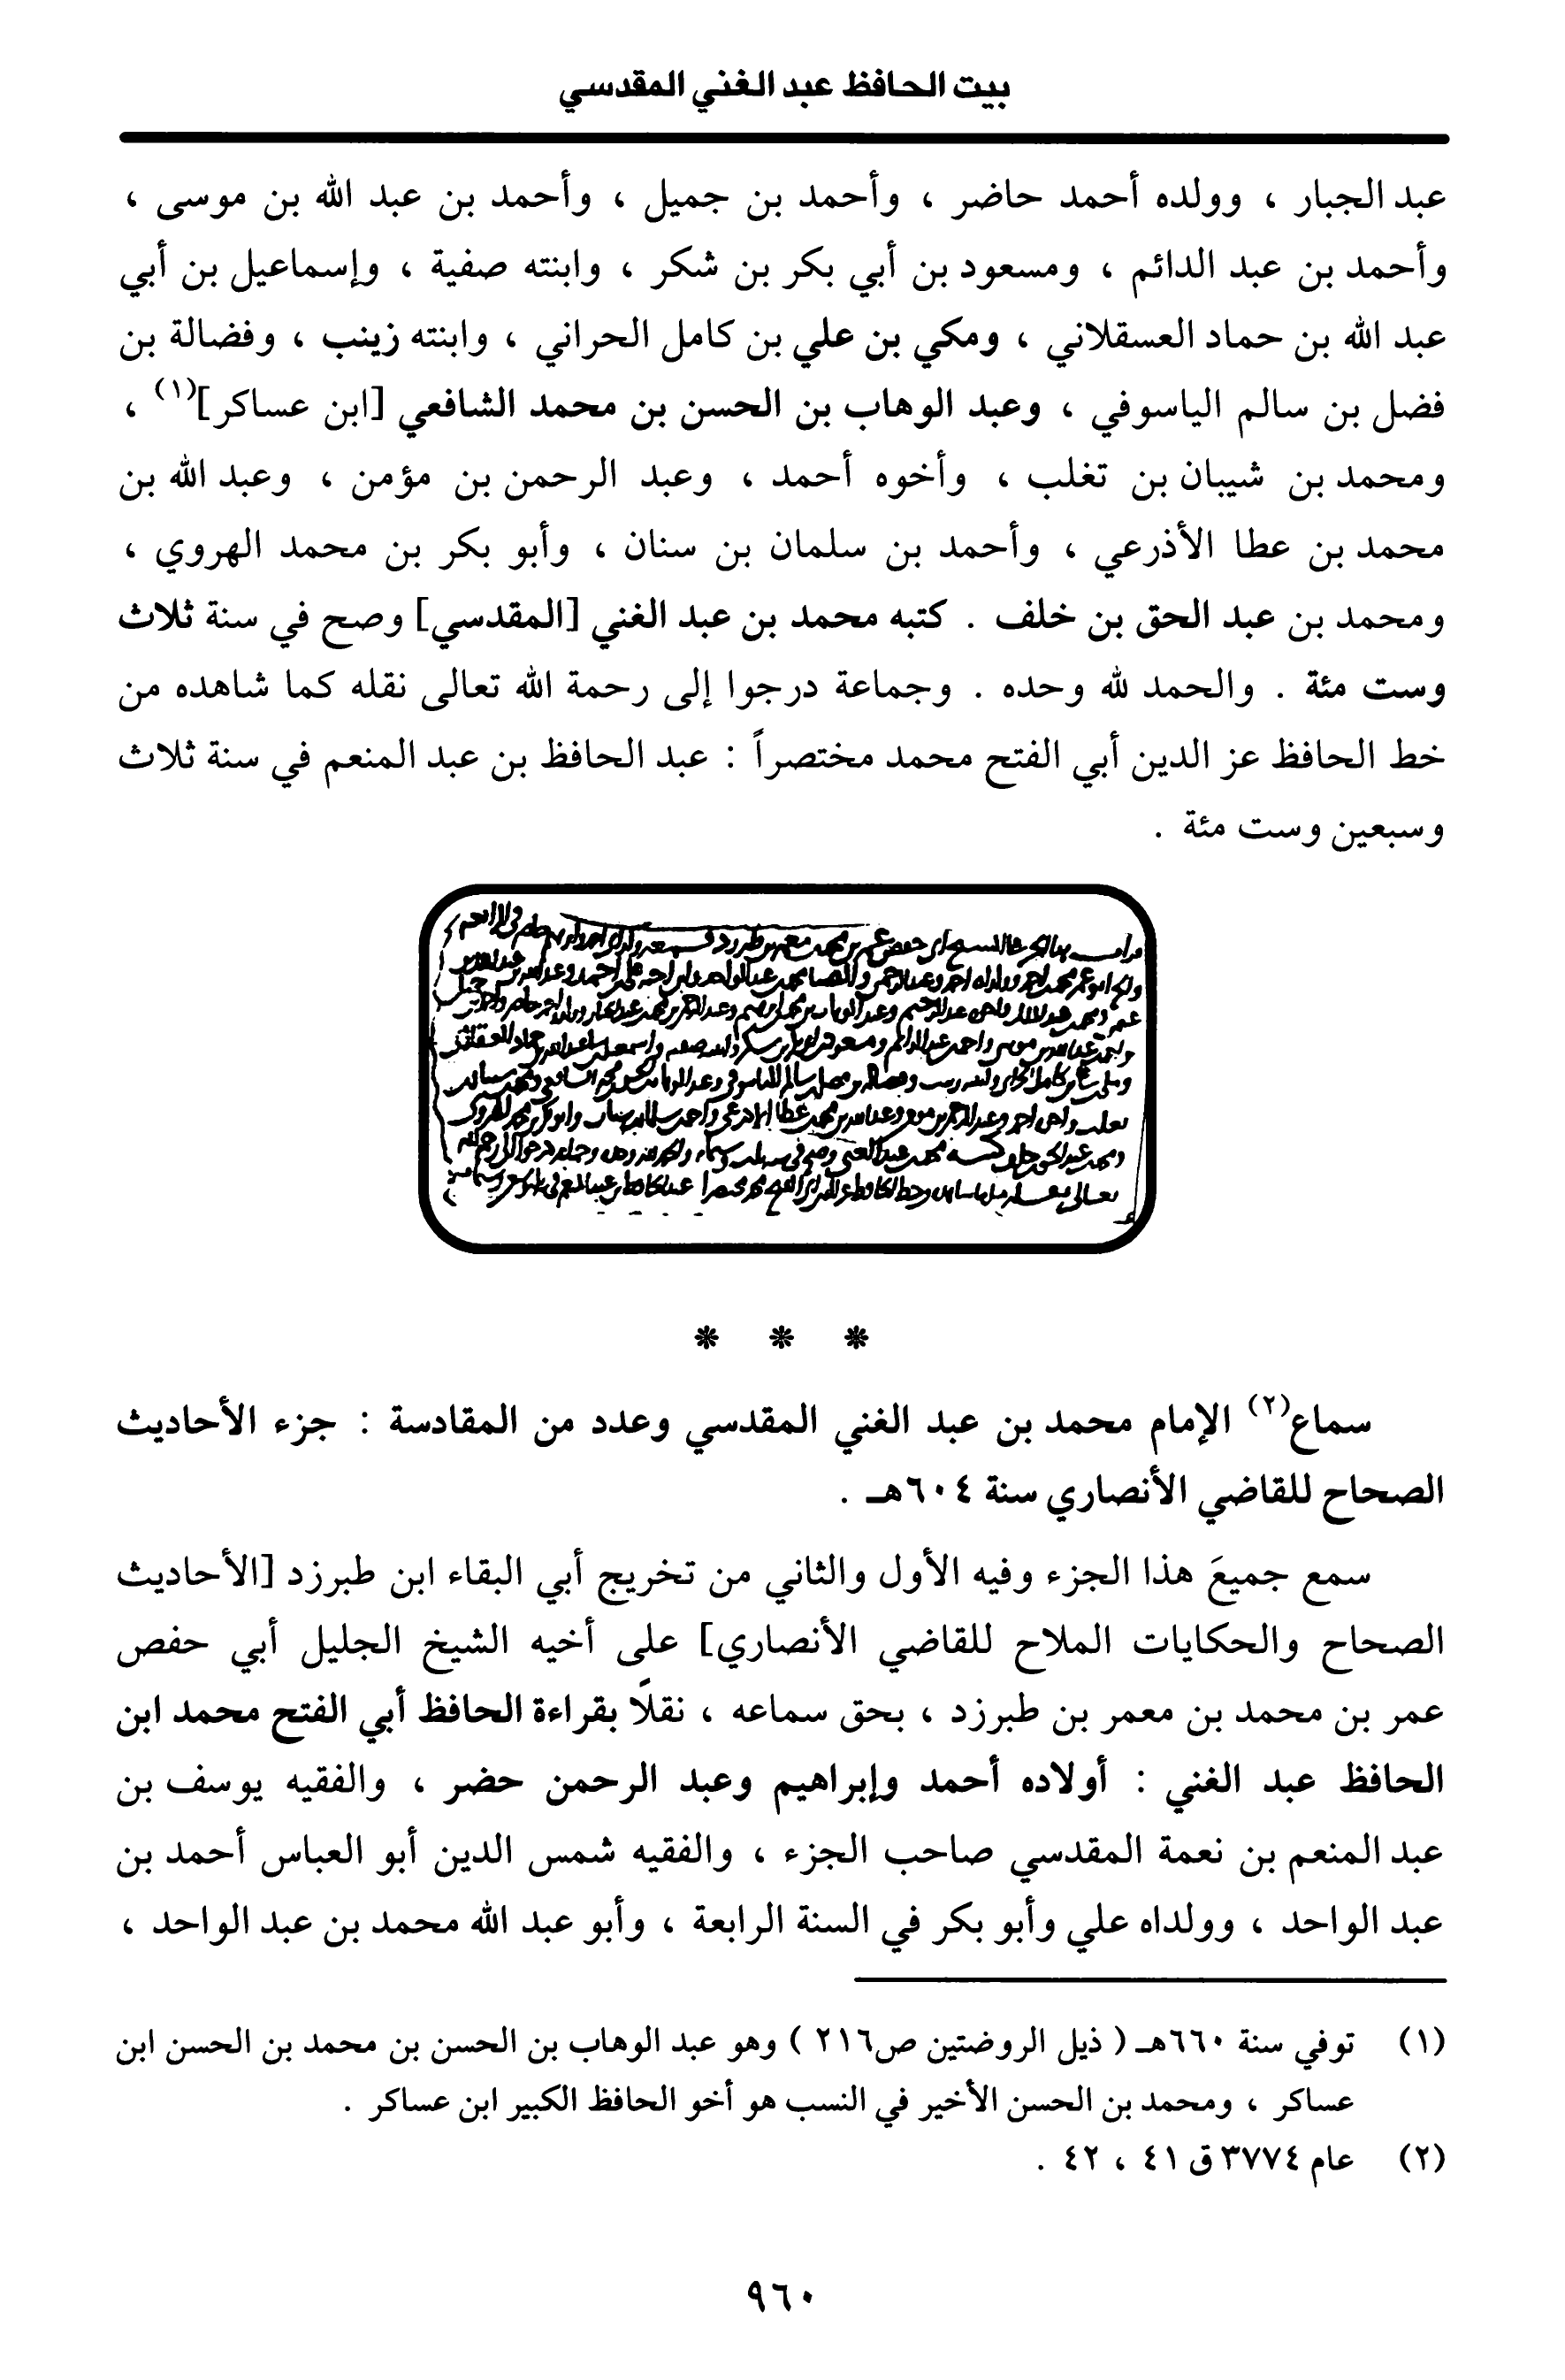 بيت الحافظ عبد الغني المقدسي
عبد الجبار ، وولده أحمد حاضر ، وأحمد بن جميل ، وأحمد بن عبد الله بن موسى ،
وأحمد بن عبد الدائم ، ومسعود بن أبي بكر بن شكر ، وابنته صفية ، وإسماعيل بن أبي
عبد الله بن حماد العسقلاني ، ومكي بن علي بن كامل الحراني ، وابنته زينب ، وفضالة بن
فضل بن سالم الياسوفي ، وعبد الوهاب بن الحسن بن محمد الشافعي [ابن عساكر](١) ،
ومحمد بن شيبان بن تغلب ، وأخوه أحمد ، وعبد الرحمن بن مؤمن ، وعبد الله بن
محمد بن عطا الأذرعي ، وأحمد بن سلمان بن سنان ، وأبو بكر بن محمد الهروي ،
ومحمد بن عبد الحق بن خلف . كتبه محمد بن عبد الغني [المقدسي] وصح في سنة ثلاث
وست مئة . والحمد لله وحده . وجماعة درجوا إلى رحمة الله تعالى نقله كما شاهده من
خط الحافظ عز الدين أبي الفتح محمد مختصراً : عبد الحافظ بن عبد المنعم في سنة ثلاث
وسبعين وست مئة .
* * *
سماع(٢) الإمام محمد بن عبد الغني المقدسي وعدد من المقادسة : جزء الأحاديث
الصحاح للقاضي الأنصاري سنة ٦٠٤هـ .
سمع جميعَ هذا الجزء وفيه الأول والثاني من تخريج أبي البقاء ابن طبرزد [الأحاديث
الصحاح والحكايات الملاح للقاضي الأنصاري] على أخيه الشيخ الجليل أبي حفص
عمر بن محمد بن معمر بن طبرزد ، بحق سماعه ، نقلًا بقراءة الحافظ أبي الفتح محمد ابن
الحافظ عبد الغني : أولاده أحمد وإبراهيم وعبد الرحمن حضر ، والفقيه يوسف بن
عبد المنعم بن نعمة المقدسي صاحب الجزء ، والفقيه شمس الدين أبو العباس أحمد بن
عبد الواحد ، وولداه علي وأبو بكر في السنة الرابعة ، وأبو عبد الله محمد بن عبد الواحد ،
(١) توفي سنة ٦٦٠هـ ( ذيل الروضتين ص٢١٦ ) وهو عبد الوهاب بن الحسن بن محمد بن الحسن ابن
عساكر ، ومحمد بن الحسن الأخير في النسب هو أخو الحافظ الكبير ابن عساكر .
(٢) عام ٣٧٧٤ ق ٤١ ، ٤٢ .
٩٦٠